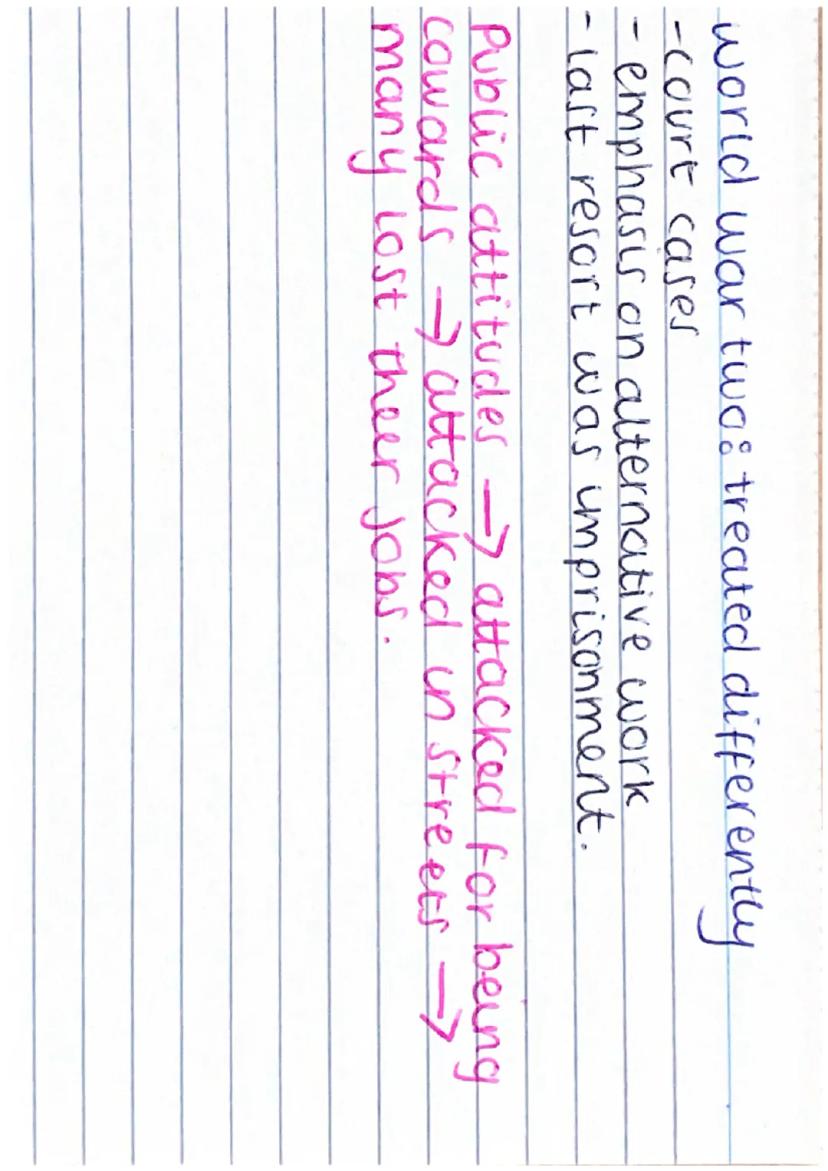 world war two: treated differently
-court cases
- emphasis on alternative work
- last resort was imprisonment.
Public attitudes → attacked for being
cowards → attacked in streets →
many lost theer jobs.